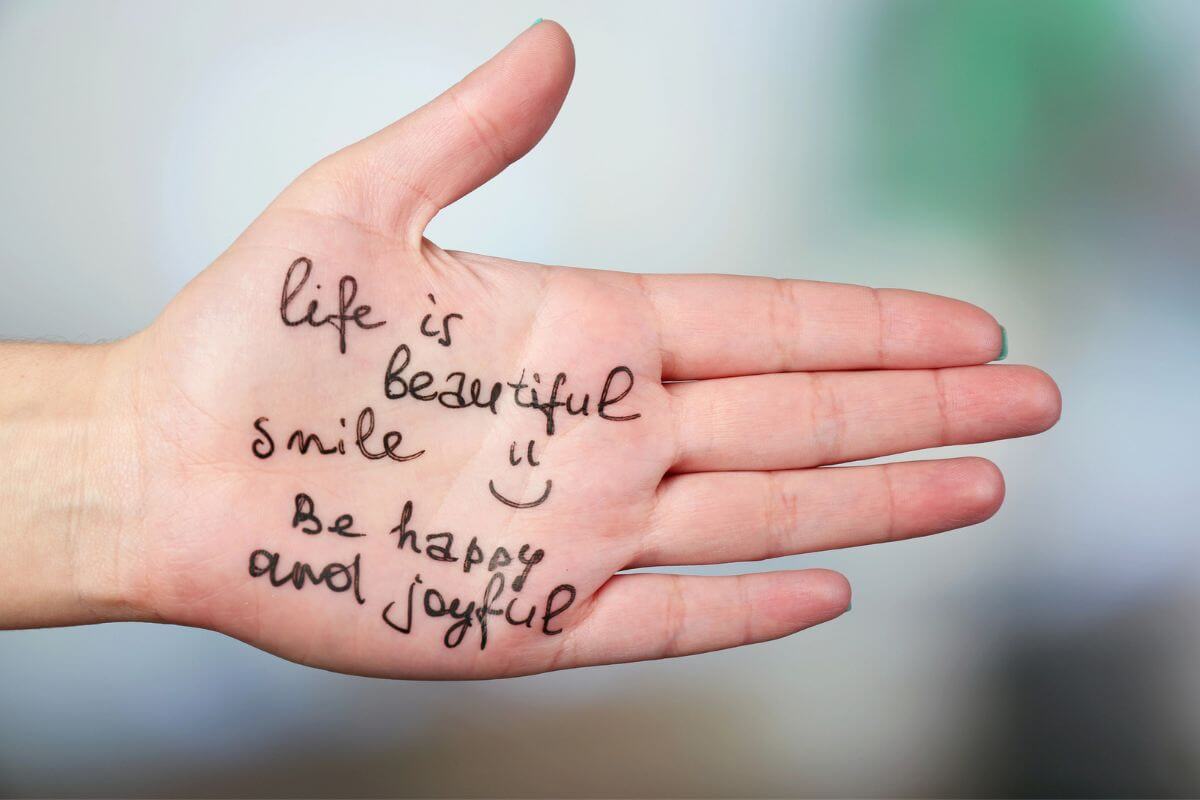 life is
beautiful
smile
Be happy
and joyful